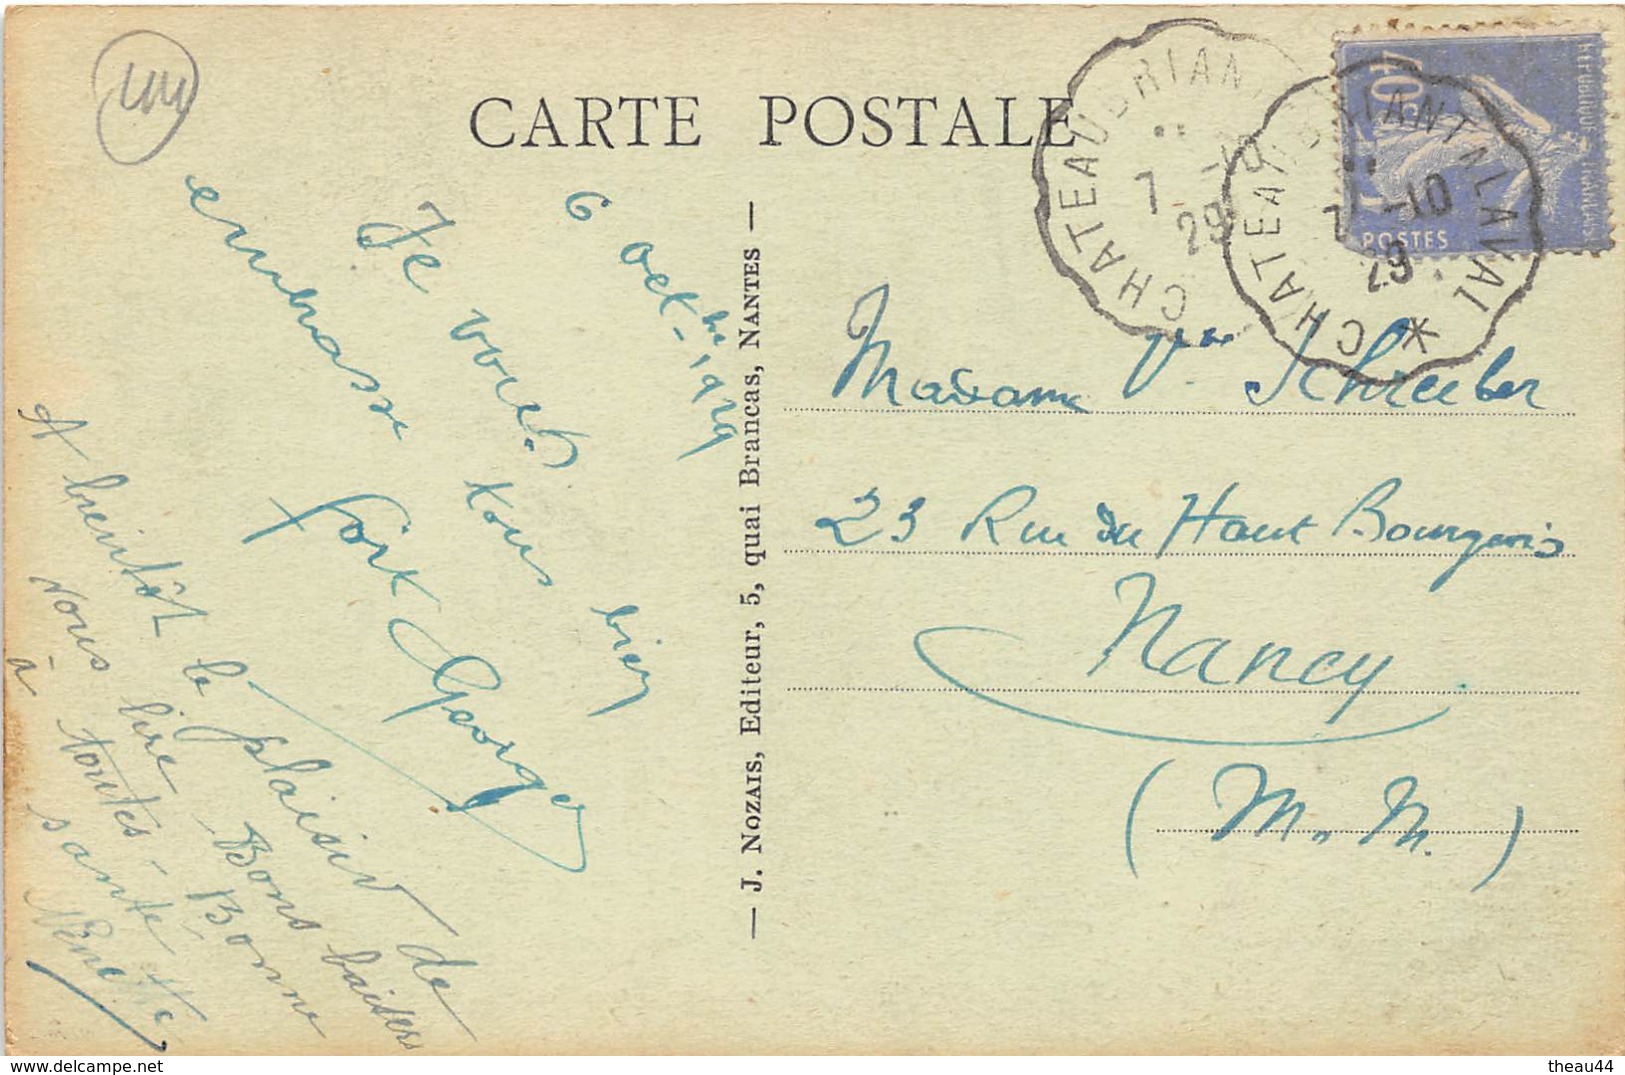 44
CARTE POSTALE
CHATEAUBRIANT
7 -10
29
CHATEAUBRIANT A LAVAL *
7 -10
29
40
REPUBLIQUE FRANÇAISE
POSTES
6 oct bre - 1929
Je vous tous bien
embrasse fort
Georges
A bientôt le plaisir de
vous lire Bons baisers
à toutes - Bonne
santé
Ninette
— J. NOZAIS, Editeur, 5, quai Brancas, NANTES —
Madame Vve Schreiber
23 Rue du Haut Bourgeois
Nancy
(M. M.)
theau44